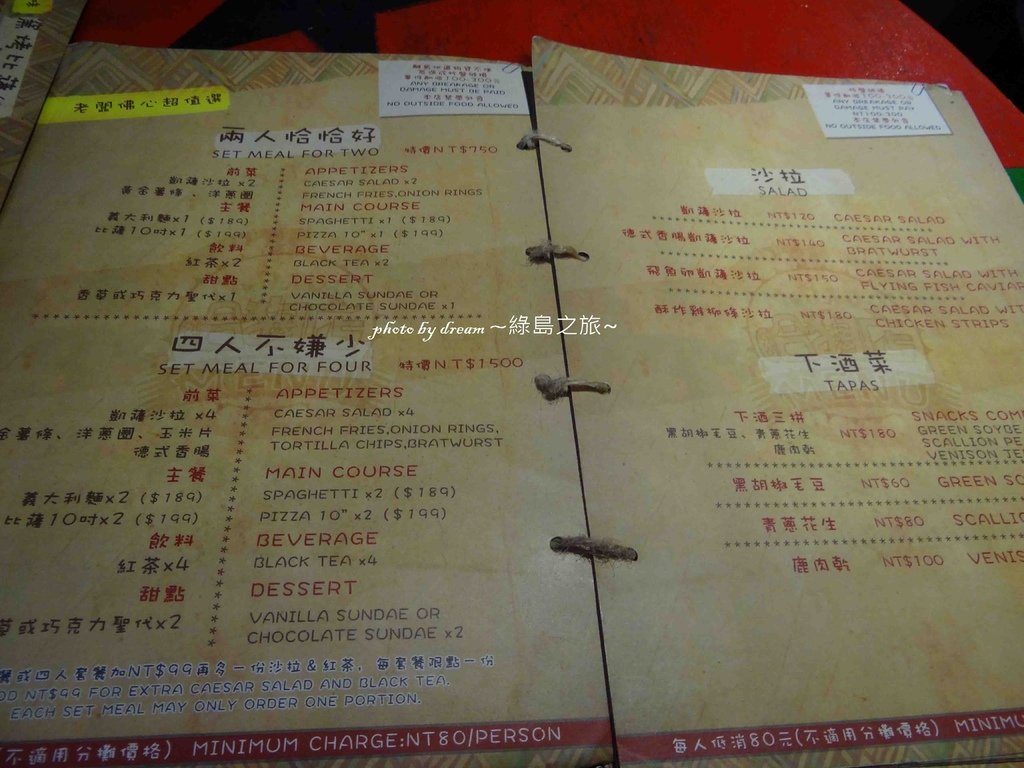 老闆佛心超值選
ANY BREAKAGE OR
DAMAGE MUST BE PAID
本店禁帶外食
NO OUTSIDE FOOD ALLOWED
兩人恰恰好
SET MEAL FOR TWO 特價NT$750
前菜 APPETIZERS
凱薩沙拉 x2 CAESAR SALAD x2
黃金薯條、洋蔥圈 FRENCH FRIES,ONION RINGS
主餐 MAIN COURSE
義大利麵x1 ($189) SPAGHETTI x1 ($189)
比薩10吋x1 ($199) PIZZA 10" x1 ($199)
飲料 BEVERAGE
紅茶x2 BLACK TEA x2
甜點 DESSERT
香草或巧克力聖代x1 VANILLA SUNDAE OR
CHOCOLATE SUNDAE x1
photo by dream ~綠島之旅~
四人不嫌少
SET MEAL FOR FOUR 特價NT$1500
前菜 APPETIZERS
凱薩沙拉 x4 CAESAR SALAD x4
金薯條、洋蔥圈、玉米片 FRENCH FRIES,ONION RINGS,
德式香腸 TORTILLA CHIPS,BRATWURST
主餐 MAIN COURSE
義大利麵x2 ($189) SPAGHETTI x2 ($189)
比薩10吋x2 ($199) PIZZA 10" x2 ($199)
飲料 BEVERAGE
紅茶x4 BLACK TEA x4
甜點 DESSERT
草或巧克力聖代x2 VANILLA SUNDAE OR
CHOCOLATE SUNDAE x2
餐或四人套餐加NT$99再多一份沙拉&紅茶, 每套餐限點一份
NT$99 FOR EXTRA CAESAR SALAD AND BLACK TEA.
EACH SET MEAL MAY ONLY ORDER ONE PORTION.
(不適用分攤價格) MINIMUM CHARGE:NT80/PERSON
ANY BREAKAGE OR
DAMAGE MUST PAY
NT:100-300
本店禁帶外食
NO OUTSIDE FOOD ALLOWED
沙拉
SALAD
凱薩沙拉 NT$120 CAESAR SALAD
德式香腸凱薩沙拉 NT$140 CAESAR SALAD WITH
BRATWURST
飛魚卵凱薩沙拉 NT$150 CAESAR SALAD WITH
FLYING FISH CAVIAR
酥炸雞柳條沙拉 NT$180 CAESAR SALAD WIT
CHICKEN STRIPS
下酒菜
TAPAS
下酒三拼 SNACKS COM
黑胡椒毛豆、青蔥花生 NT$180 GREEN SOYBE
鹿肉乾 SCALLION PE
VENISON JE
黑胡椒毛豆 NT$60 GREEN SO
青蔥花生 NT$80 SCALLIO
鹿肉乾 NT$100 VENIS
每人低消80元(不適用分攤價格) MINIMU